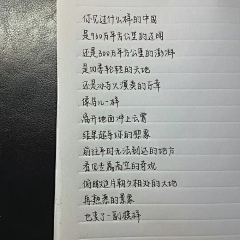 你见过什么样的中国
是960万平方公里的辽阔
还是300万平方公里的澎湃
是四季轮转的天地
还是冰与火演奏的乐章
像鸟儿一样
离开地面冲上云霄
结果超乎你的想象
前往平时无法到达的地方
看见专属高空的奇观
俯瞰这片朝夕相处的大地
再熟悉的景象
也变了一副模样